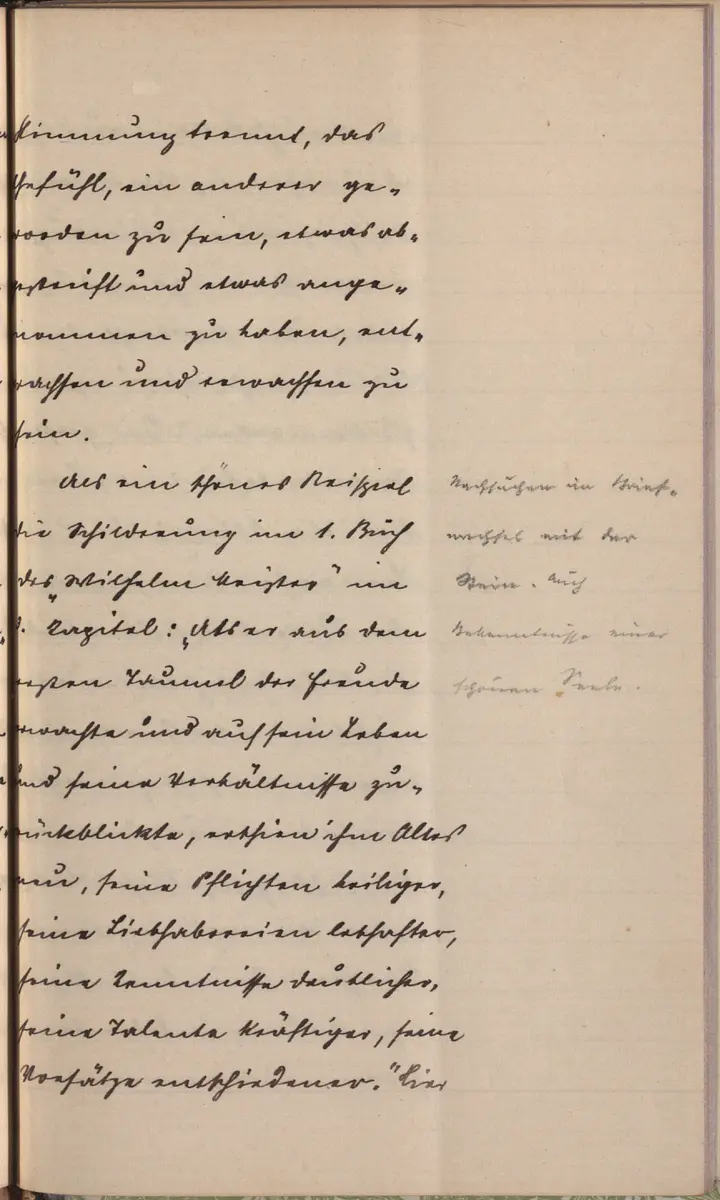 stimmung trennt, das
Gefühl, ein anderer ge-
worden zu sein, etwas ab-
gestreift und etwas ange-
nommen zu haben, ent-
wachsen und erwachsen zu
sein.
Als ein schönes Beispiel
die Schilderung im 1. Buch
des „Wilhelm Meister" im
Kapitel: „Als er aus dem
ersten Taumel der Freude
erwachte und auf sein Leben
und seine Verhältnisse zu-
rückblickte, erschien ihm Alles
neu, seine Pflichten heiliger,
seine Liebhabereien lebhafter,
seine Kenntnisse deutlicher,
seine Talente kräftiger, seine
Vorsätze entschiedener." Hier
Nachsuchen im Brief-
wechsel mit der
Stein. Auch
Bekenntnisse einer
schönen Seele.